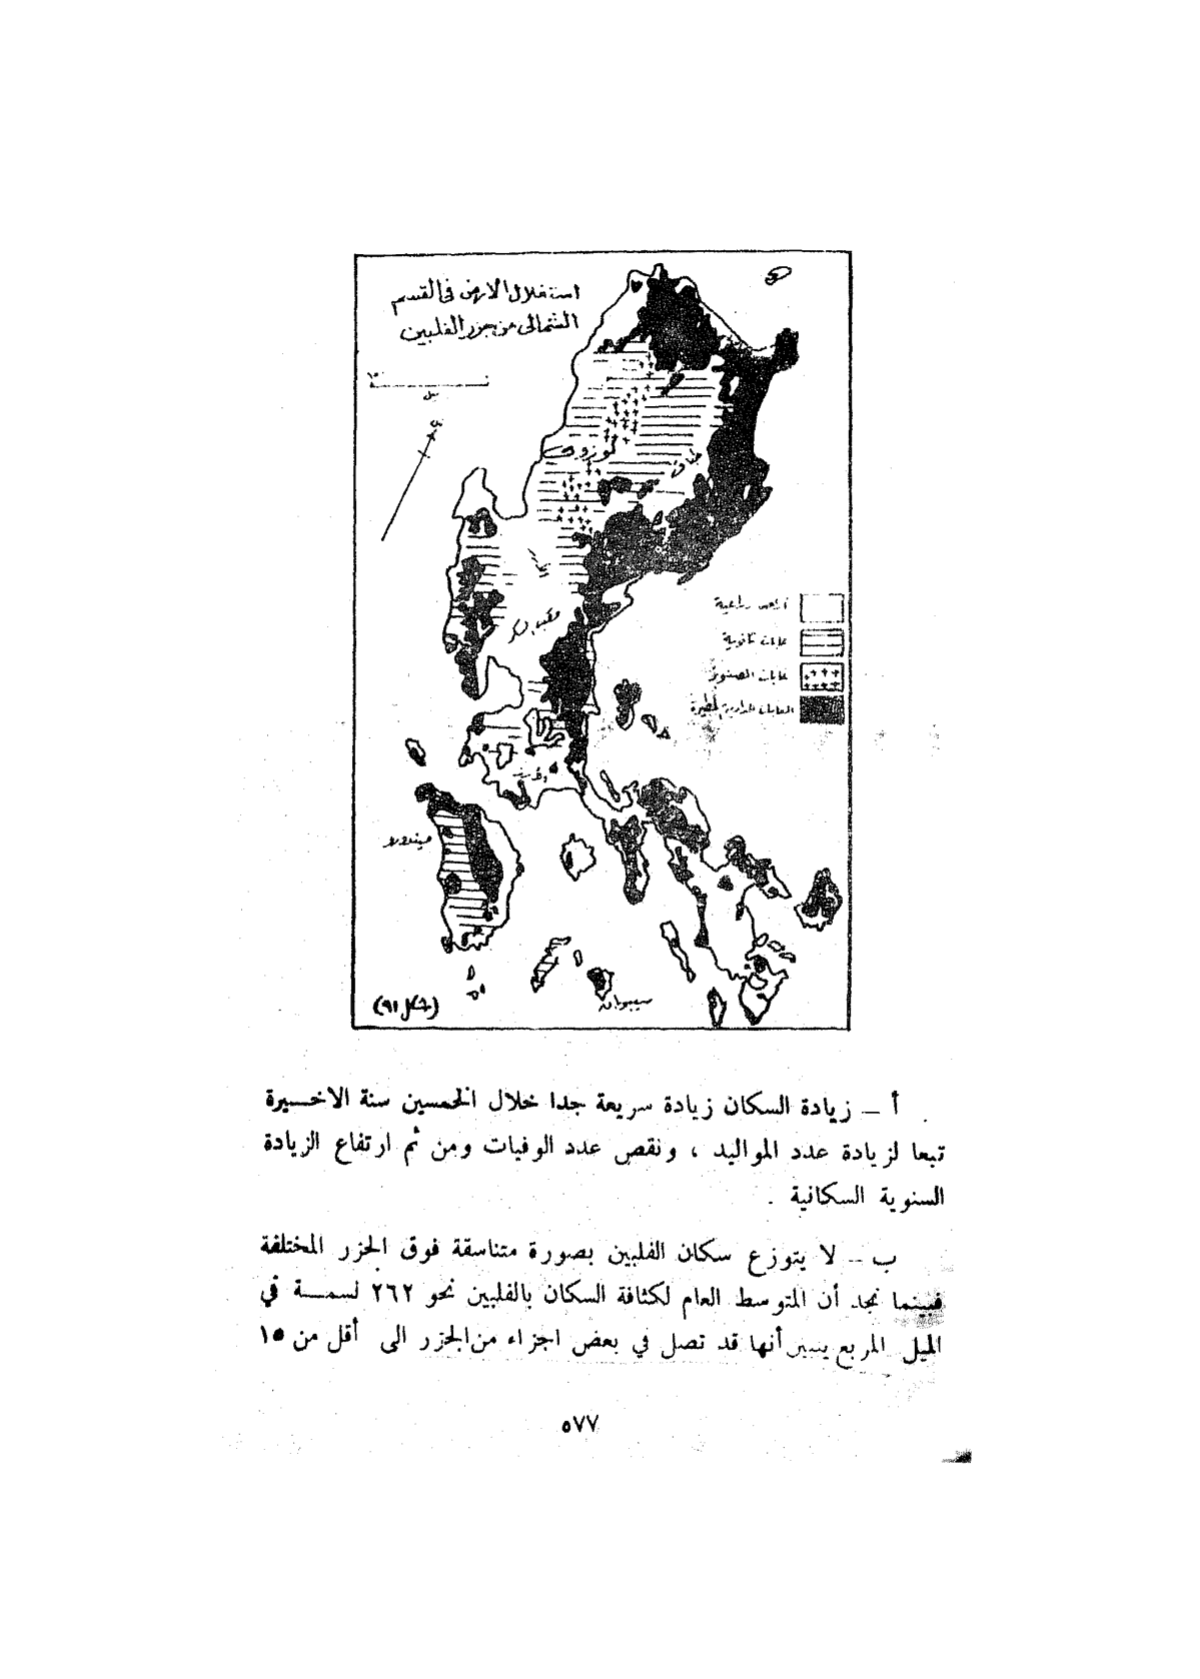 استغلال الارض في القسم
الشمالى من جزر الفلبين
ميل
لوزون
أراضى زراعية
غابات ثانوية
غابات الصنوبر
الغابات المدارية المطيرة
ميندورو
سيبويان
(شكل ٩١)
أ ــ زيادة السكان زيادة سريعة جدا خلال الخمسين سنة الاخــيرة
تبعا لزيادة عدد المواليد ، ونقص عدد الوفيات ومن ثم ارتفاع الزيادة
السنوية السكانية .
ب ــ لا يتوزع سكان الفلبين بصورة متناسقة فوق الجزر المختلفة
فبينما نجد أن المتوسط العام لكثافة السكان بالفلبين نحو ٢٦٢ نسمــة في
الميل المربع أنها قد تصل في بعض اجزاء من الجزر الى أقل من ١٥
٥٧٧